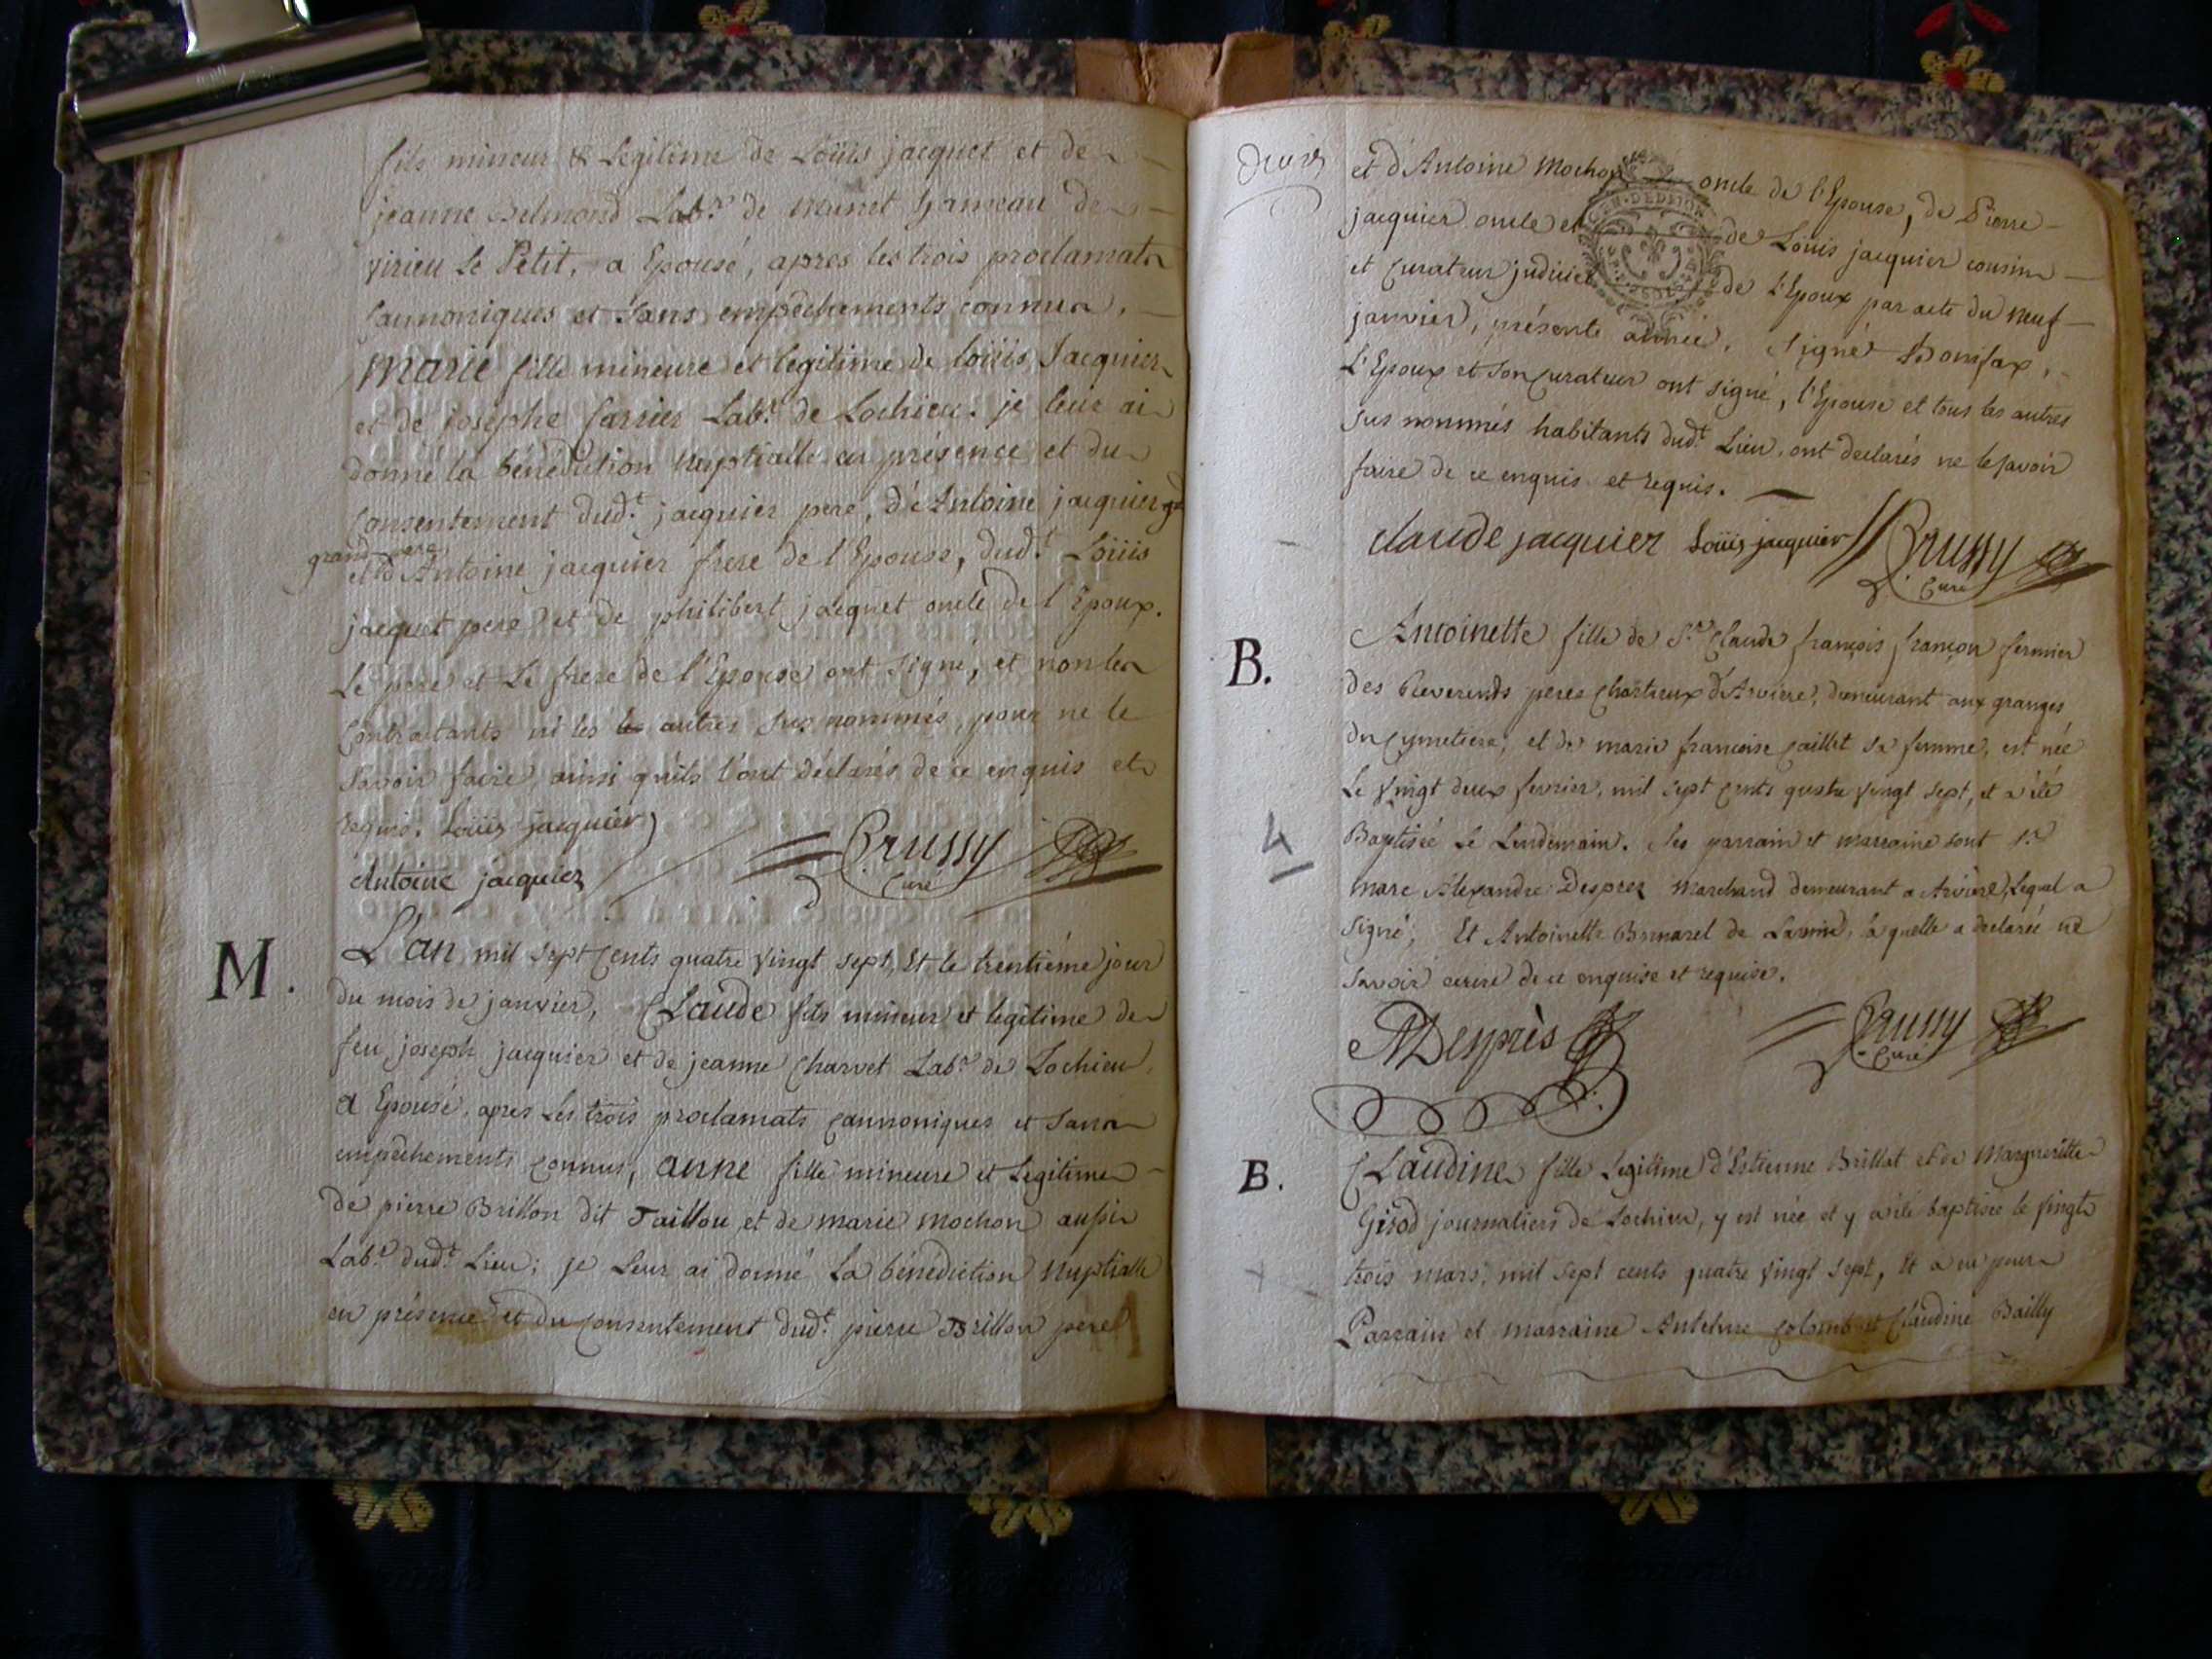 fils mineur & Legitime de Loüis jacquet et de
jeanne Delmond Lab.r de Munet hameau de
virieu Le Petit, a Epousé, apres les trois proclamats
Cannoniques et Sans empêchements connus,
Marie fille mineure et legitime de loüis Jacquier
et de josephe Carrier Lab.r de Lochieu. je leur ai
donné la bénédiction Nuptialle en présence et du
Consentement dud.t jacquier pere, d'Antoine jacquier
grand pere,
et d'Antoine jacquier frere de l'Epouse, dud.t Loüis
jacquet pere et de philibert jacquet oncle de l'Epoux.
Le pere et Le frere de l'Epouse ont signé, et non les
Contractants ni les autres sus nommés, pour ne le
Savoir faire, ainsi qu'ils l'ont déclarés de ce enquis et
requis. Loüis jacquier
Antoine jacquier
Brussy
Curé
M.
L'an mil sept Cents quatre vingt sept, Et le trentiéme jour
du mois de janvier, Claude fils mineur et legitime de
feu joseph jacquier et de jeanne Charvet Lab.r de Lochieu,
a Epousé, apres Les trois proclamats Cannoniques et sans
empêchements connus, anne fille mineure et Legitime
de pierre Brillon dit Taillou et de marie mochon aussi
Lab.r dud.t Lieu; je Leur ai donné La bénédiction Nuptialle
en présence et du Consentement dud.t pierre Brillon pere
et d'Antoine Mochon oncle de l'Epouse, de Pierre
jacquier oncle et de Louis jacquier cousin
et Curateur judiciel de l'Epoux par acte du neuf
janvier, présente année. Signé Bonifax,
L'Epoux et son Curateur ont signé, l'Epouse et tous les autres
sus nommés habitants dud.t Lieu, ont declarés ne le savoir
faire de ce enquis et requis.
claude jacquier Loüis jacquier Brussy
Curé
B.
Antoinette fille de S.r Claude françois françon fermier
des Reverends peres Chartreux d'Arviere, demeurant aux granges
du Cymetiere, et de marie francoise Caillet sa femme, est née
Le vingt deux fevrier, mil sept cents quatre vingt sept, et a été
4
Baptisée Le Lendemain. Ses parrain et marraine sont S.r
marc Alexandre Desprez Marchand demeurant a Arviere, Lequel a
signé; Et Antoinette Bonnarel de Lavoid, laquelle a declarée ne
savoir ecrire de ce enquise et requise.
MDesprès
Brussy
Curé
B.
Claudine fille Legitime d'Estienne Brillat et de Marguerītte
Girod journaliers de Lochieu, y est née et y a été baptisée le vingt
trois mars, mil sept cents quatre vingt sept, Et a eu pour
Parrain et marraine Antelme Colomb et Claudine Bailly